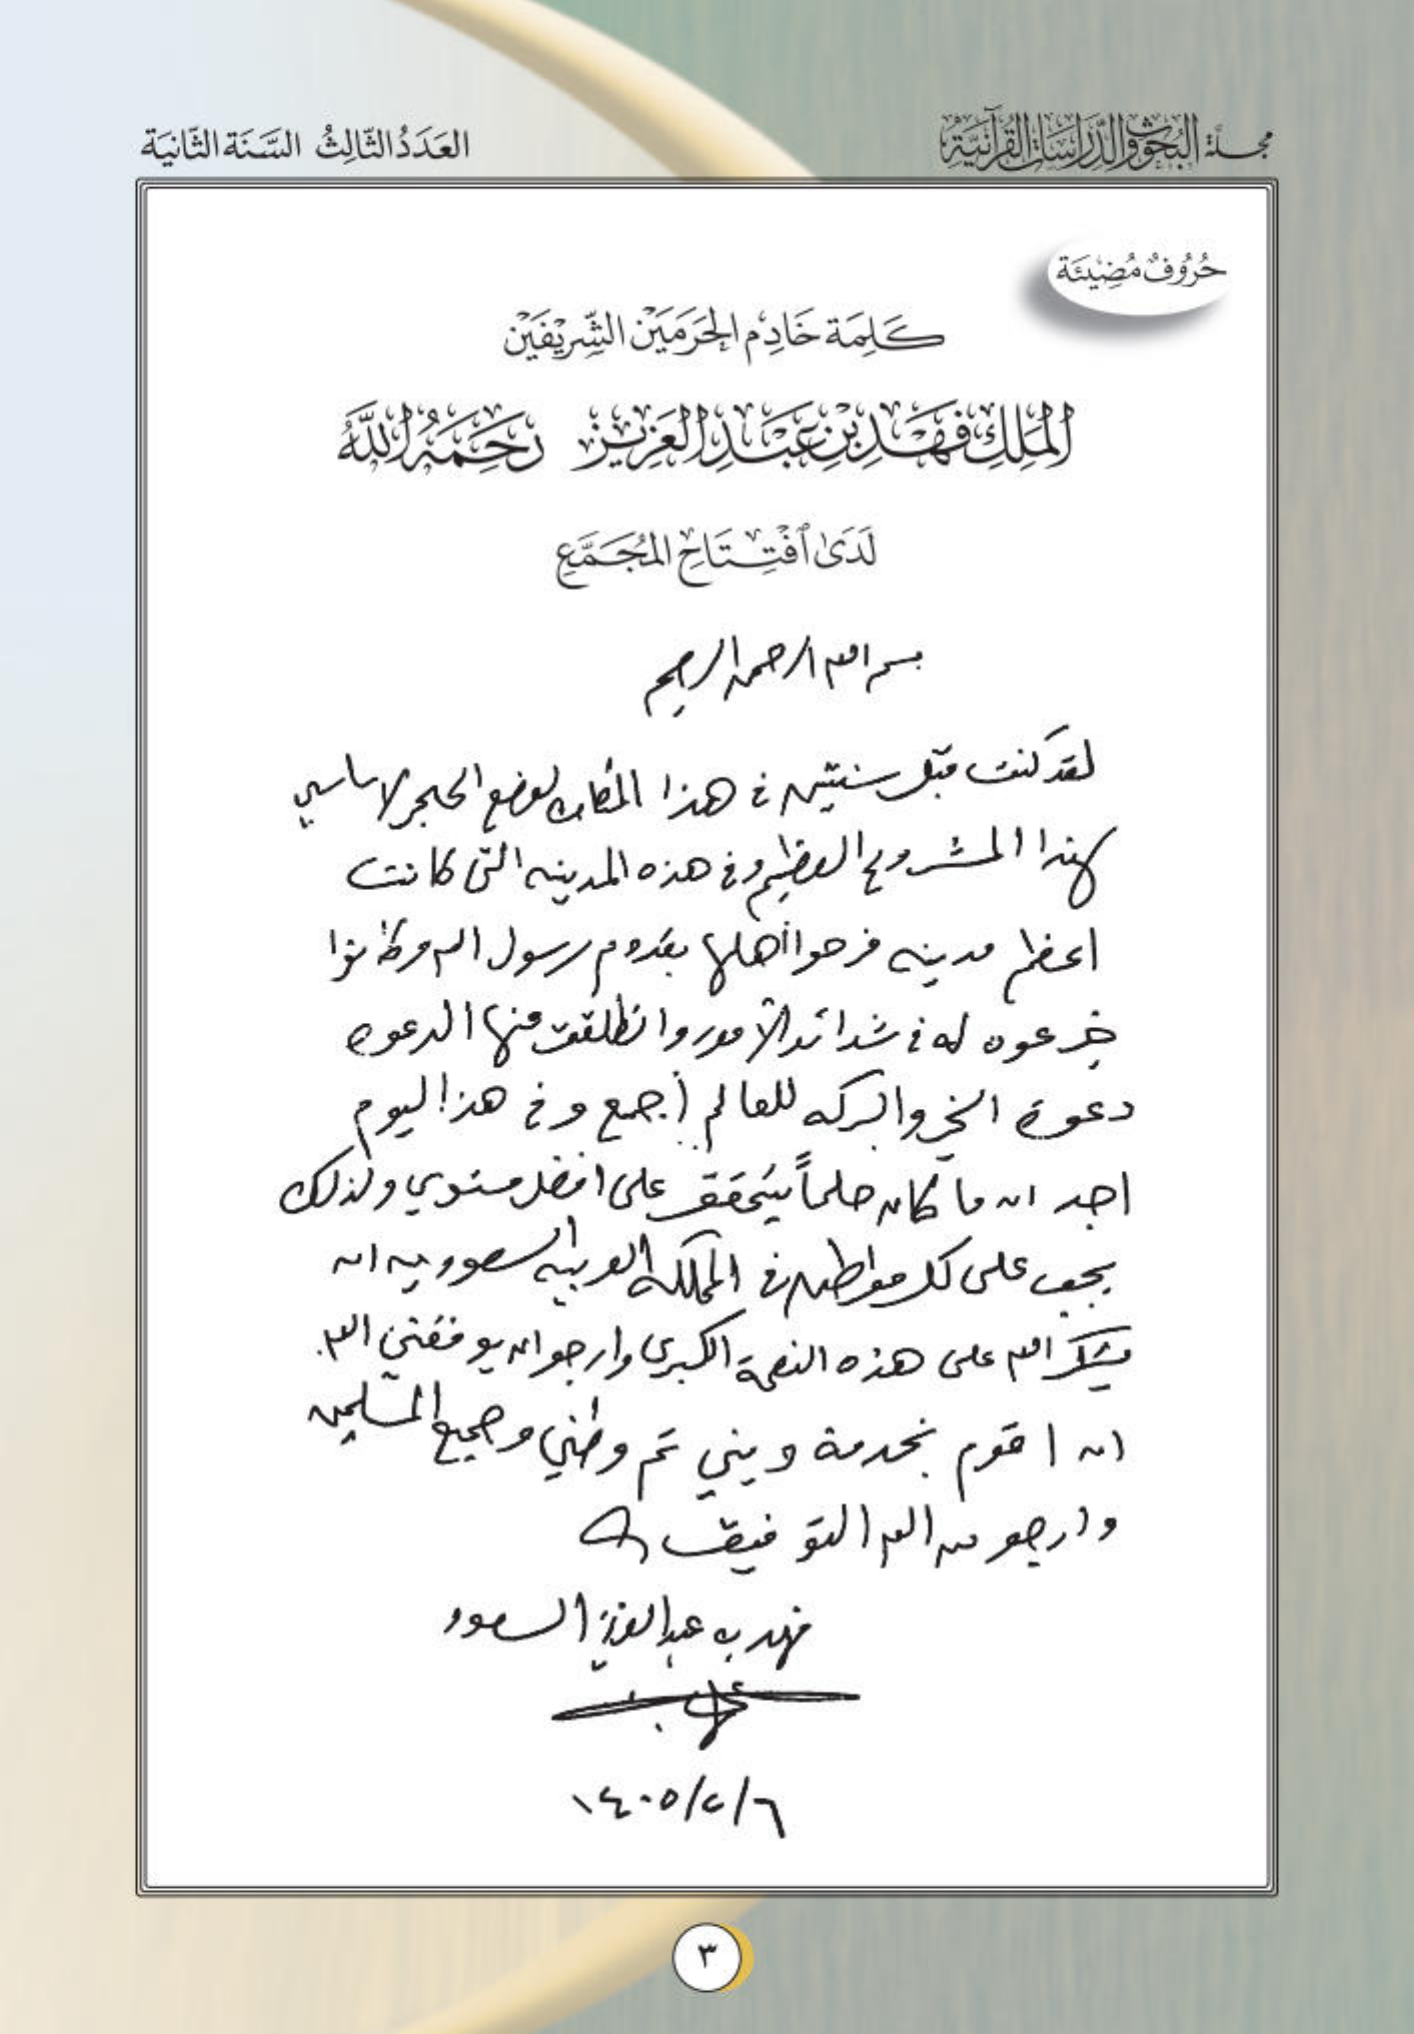 مجلة البُحُوثِ وَالدِّرَاسَاتِ القُرْآنِيَّةِ
العَدَدُ الثَّالِثُ السَّنَة الثَّانِيَة
حُرُوفٌ مُضِيئَة
كَلِمَة خَادِم الحَرَمَيْن الشَّرِيْفَيْن
المَلِكِ فَهْدِ بْنِ عَبْدِ العَزِيزِ رَحِمَهُ اللَّهُ
لَدَىٰ ٱفْتِتَاحِ المُجَمَّعِ
بسم الله الرحمن الرحيم
لقد كنت قبل سنتين في هذا المكان لوضع الحجر الاساسي
لهذا المشروع العظيم وفي هذه المدينه التي كانت
اعظم مدينه فرحوا أهلها بقدوم رسول الله وكانوا
خير عون له في شدائد الأمور وانطلقت منها الدعوه
دعوة الخير والبركه للعالم أجمع وفي هذا اليوم
اجد ان ما كان حلماً يتحقق على افضل مستوي ولذلك
يجب على كل مواطن في المملكه العربيه السعوديه ان
يشكر الله على هذه النعمة الكبرى وارجو ان يوفقني الله
ان اقوم بخدمة ديني ثم وطني وجميع المسلمين
وارجو من الله التوفيق
فهد بن عبدالعزيز السعود
١٤٠٥/٢/٦
٣